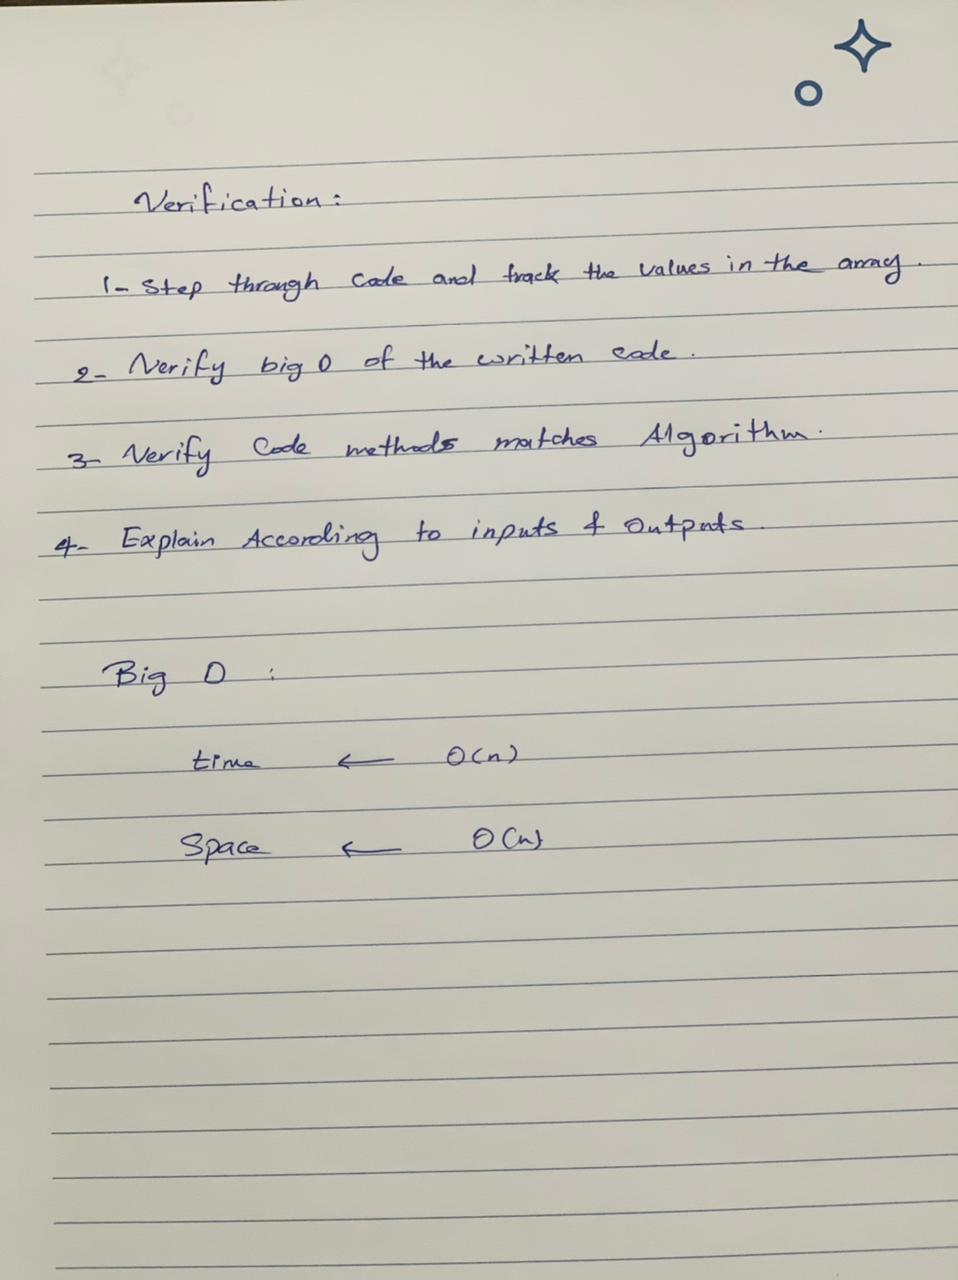 Verification:
1- Step through Code and track the values in the array.
2- Verify big O of the written code.
3- Verify Code methods matches Algorithm.
4- Explain According to inputs & Outputs.
Big O :
time ← O(n)
Space ← O(n)